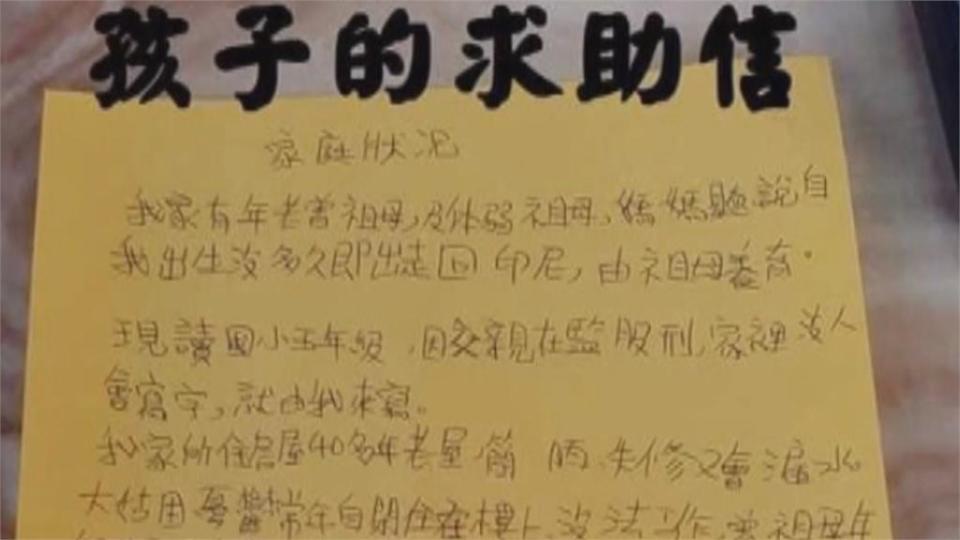 孩子的求助信
家庭狀況
我家有年老曾祖母,及体弱祖母,媽媽聽說自
我出生沒多久即出走回印尼,由祖母養育.
現讀國小五年級,因父親在監服刑,家裡沒人
會寫字,就由我來寫。
我家所住房屋40多年老屋簡陋失修又會漏水
大姑因憂鬱常年自閉住在樓上沒法工作,曾祖母年